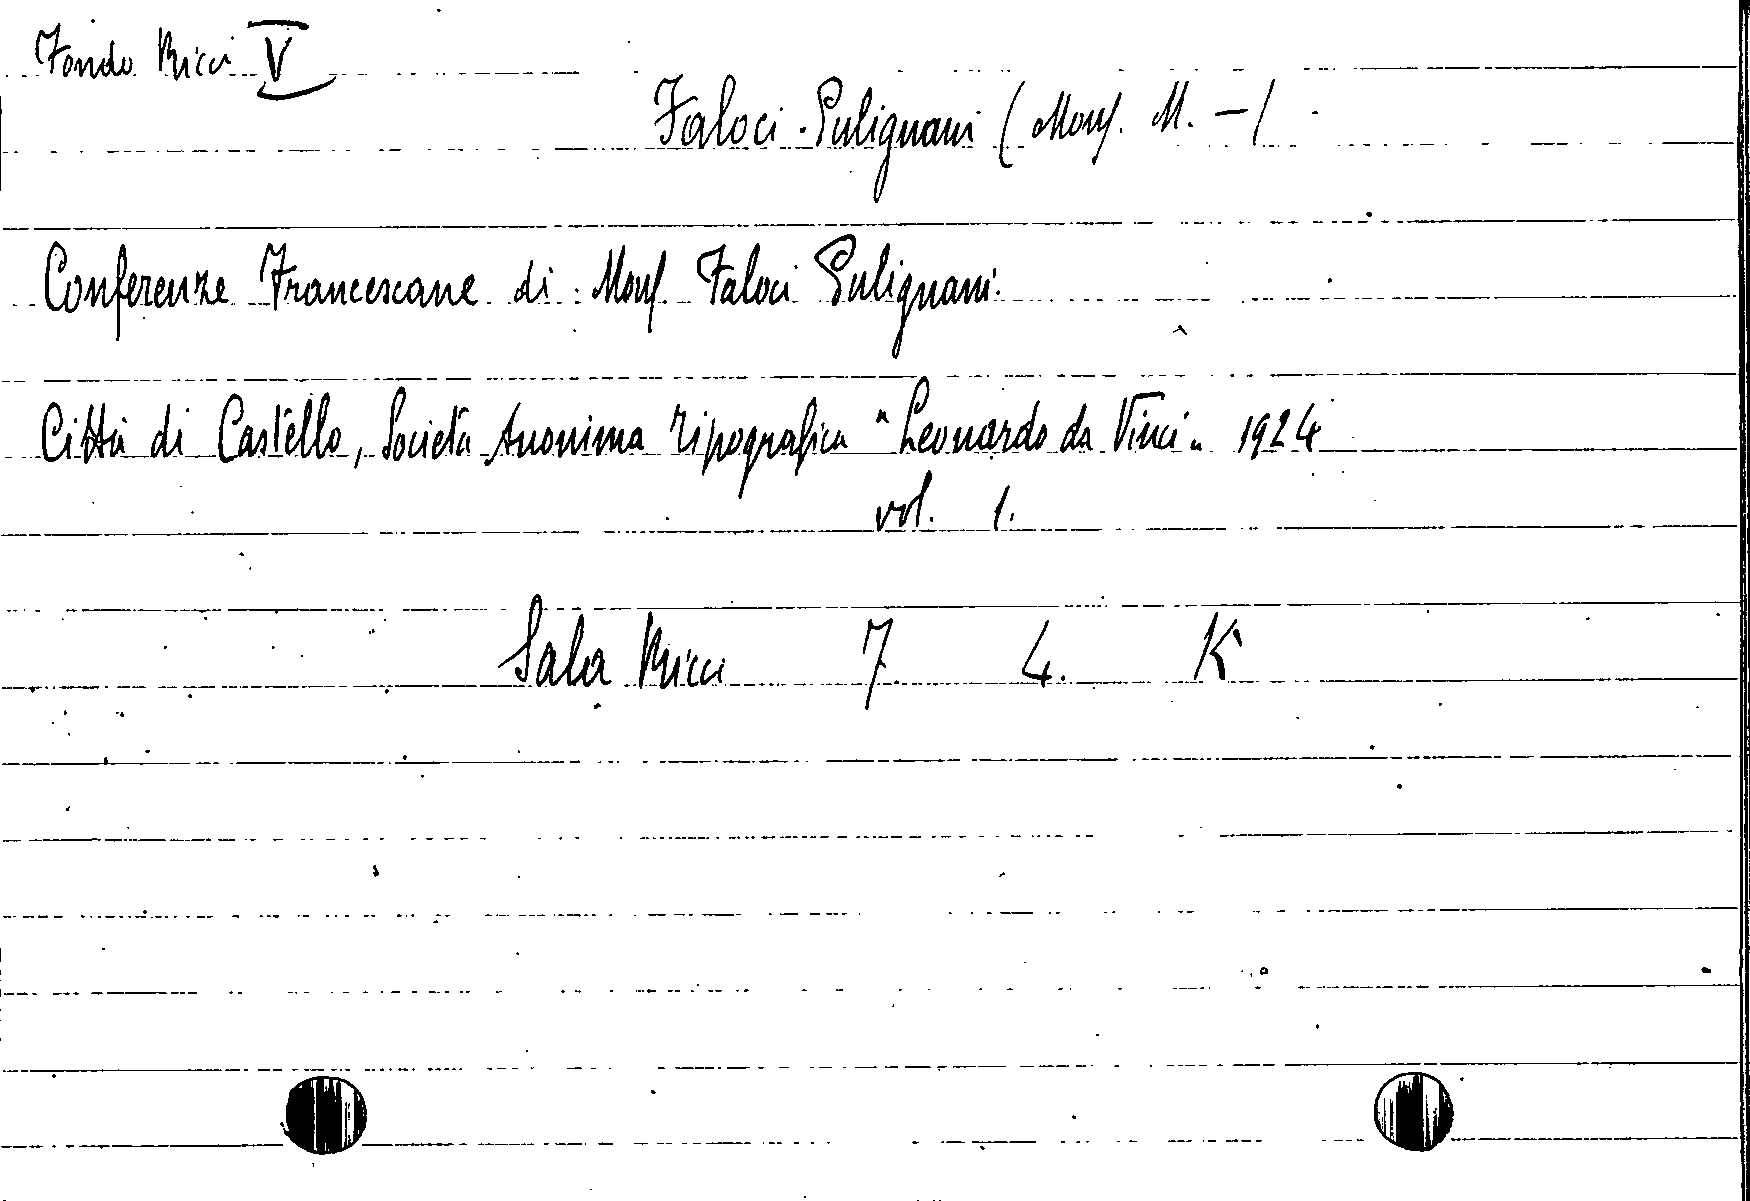 Fondo Ricci V
Faloci-Pulignani (Mons. M. -)
Conferenze Francescane di Mons. Faloci Pulignani.
Città di Castello, Società Anonima Tipografica "Leonardo da Vinci" 1924
vol. 1.
Sala Ricci 7. 4. K